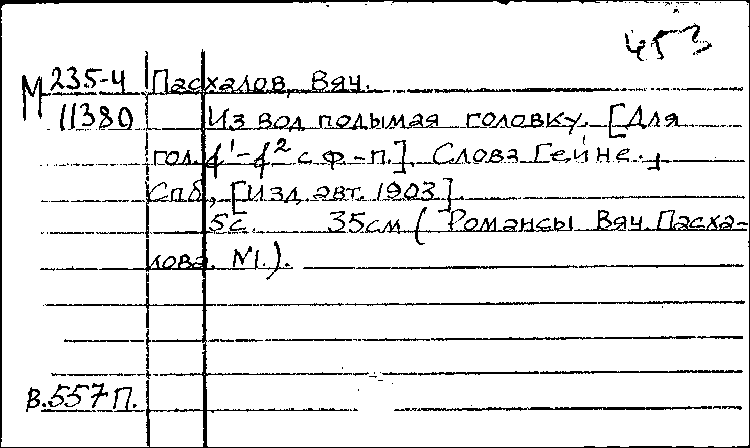 453
М 235-4 Пасхалов, Вяч.
11380 Из вод подымая головку. [Для
гол. f¹-f² с ф.-п.]. Слова Гейне.
Спб, [Изд. авт. 1903].
5с. 35см (Романсы Вяч. Пасха-
лова. №1.).
В.557П.